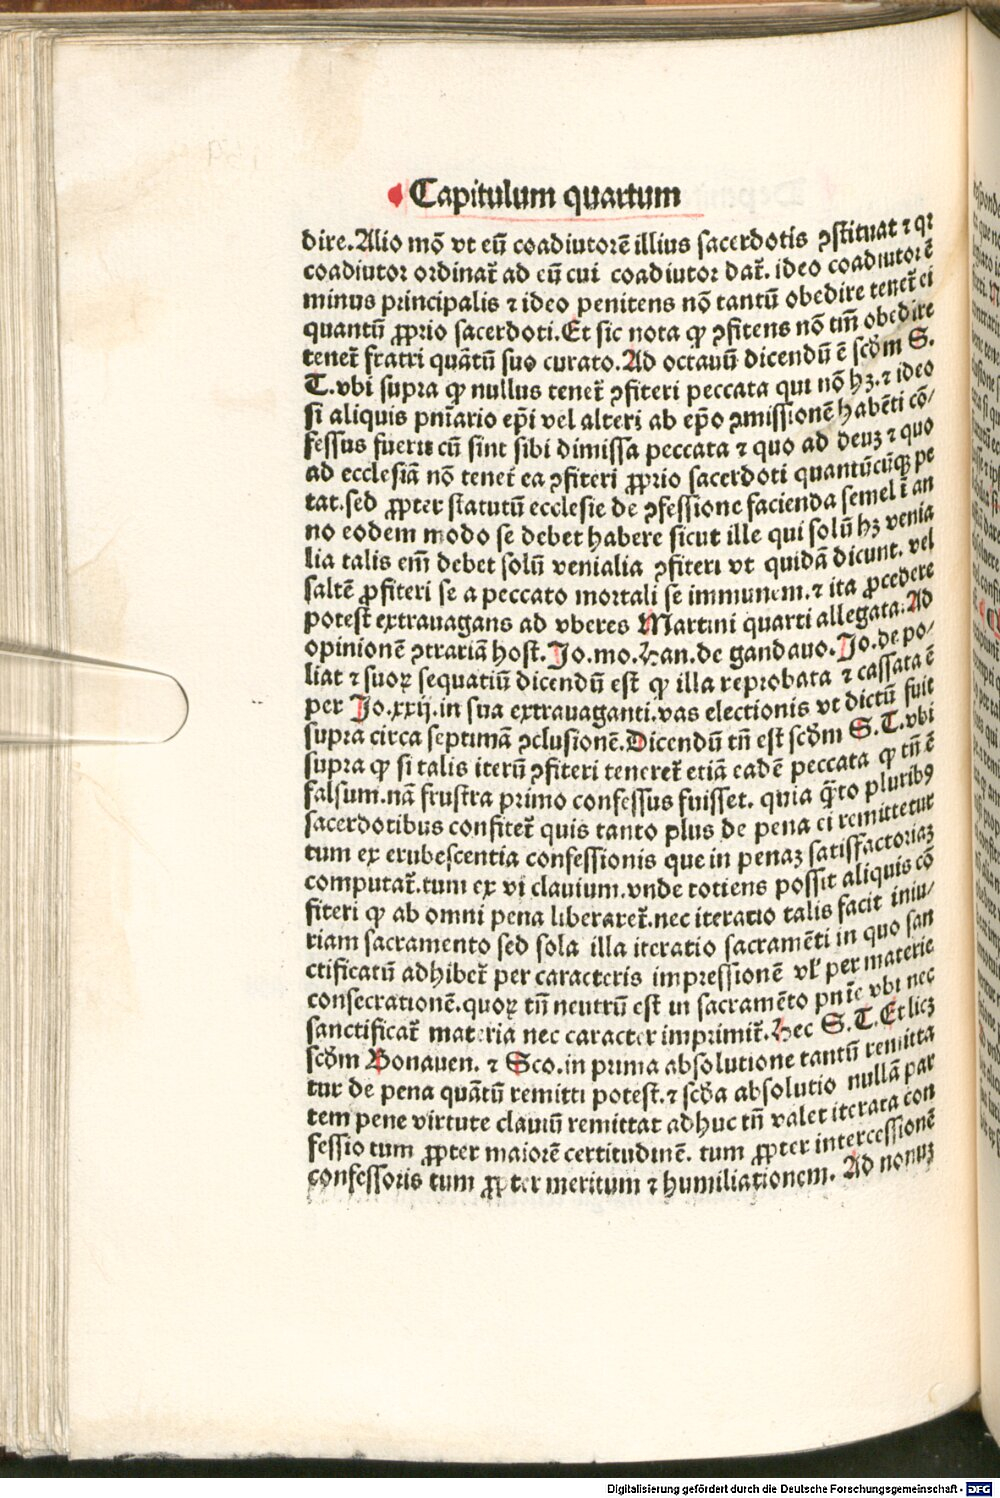 Capitulum quartum
dire. Alio mō vt eū coadiutorē illius sacerdotis ꝯstituat ⁊ qꝛ
coadiutor ordinat̃ ad eū cui coadiutor dat̃. ideo coadiutorē
minus principalis ⁊ ideo penitens nō tantū obedire tenet̃ ei
quantū ꝓprio sacerdoti. Et sic nota ꝙ ꝯfitens nō tm̄ obedire
tenet̃ fratri quātū suo curato. Ad octauū dicendū ē scd̄m S.
T. vbi supra ꝙ nullus tenet̃ ꝯfiteri peccata qui nō hꝫ. ⁊ ideo
si aliquis pnīario ep̄i vel alteri ab ep̄o ꝯmissionē habēti cō/
fessus fuerit cū sint sibi dimissa peccata ⁊ quo ad deuꝫ ⁊ quo
ad ecclesiā nō tenet̃ ea ꝯfiteri ꝓprio sacerdoti quantūcūqꝫ pe
tat. sed ꝓpter statutū ecclesie de ꝯfessione facienda semel ī an
no eodem modo se debet habere sicut ille qui solū hꝫ venia
lia talis em̄ debet solū venialia ꝯfiteri vt quidā dicunt. vel
saltē ꝓfiteri se a peccato mortali se immunem. ⁊ ita ꝓcedere
potest extrauagans ad vberes Martini quarti allegata. Ad
opinionē ꝯtrariā host. Jo. mo. han. de gandauo. Jo. de po/
liat ⁊ suoꝝ sequatiū dicendū est ꝙ illa reprobata ⁊ cassata ē
per Jo. xxij. in sua extrauaganti. vas electionis vt dictū fuit
supra circa septimā ꝯclusionē. Dicendū tñ est scd̄m S. T. vbi
supra ꝙ si talis iterū ꝯfiteri teneret̃ etiā eadē peccata ꝙ tñ ē
falsum. nā frustra primo confessus fuisset. quia q̄to pluribꝰ
sacerdotibus confitet̃ quis tanto plus de pena ei remittetur
tum ex erubescentia confessionis que in penaꝫ satisfactoriaꝫ
computat̃. tum ex vi clauium. vnde totiens possit aliquis cō
fiteri ꝙ ab omni pena liberaret̃. nec iteratio talis facit iniu/
riam sacramento sed sola illa iteratio sacramēti in quo san
ctificatū adhibet̃ per caracteris impressionē vl̕ per materie
consecrationē. quoꝝ tñ neutrū est in sacramēto pn̄ie vbi nec
sanctificat̃ materia nec caracter imprimit̃. Hec S. T. Et licꝫ
scd̄m Bonauen. ⁊ Sco. in prima absolutione tantū remitta
tur de pena quātū remitti potest. ⁊ scd̄a absolutio nullā par
tem pene virtute clauiū remittat adhuc tñ valet iterata con
fessio tum ꝓpter maiorē certitudinē. tum ꝓpter intercessionē
confessoris tum ꝓpter meritum ⁊ humiliationem. Ad nonuꝫ
Digitalisierung gefördert durch die Deutsche Forschungsgemeinschaft - DFG